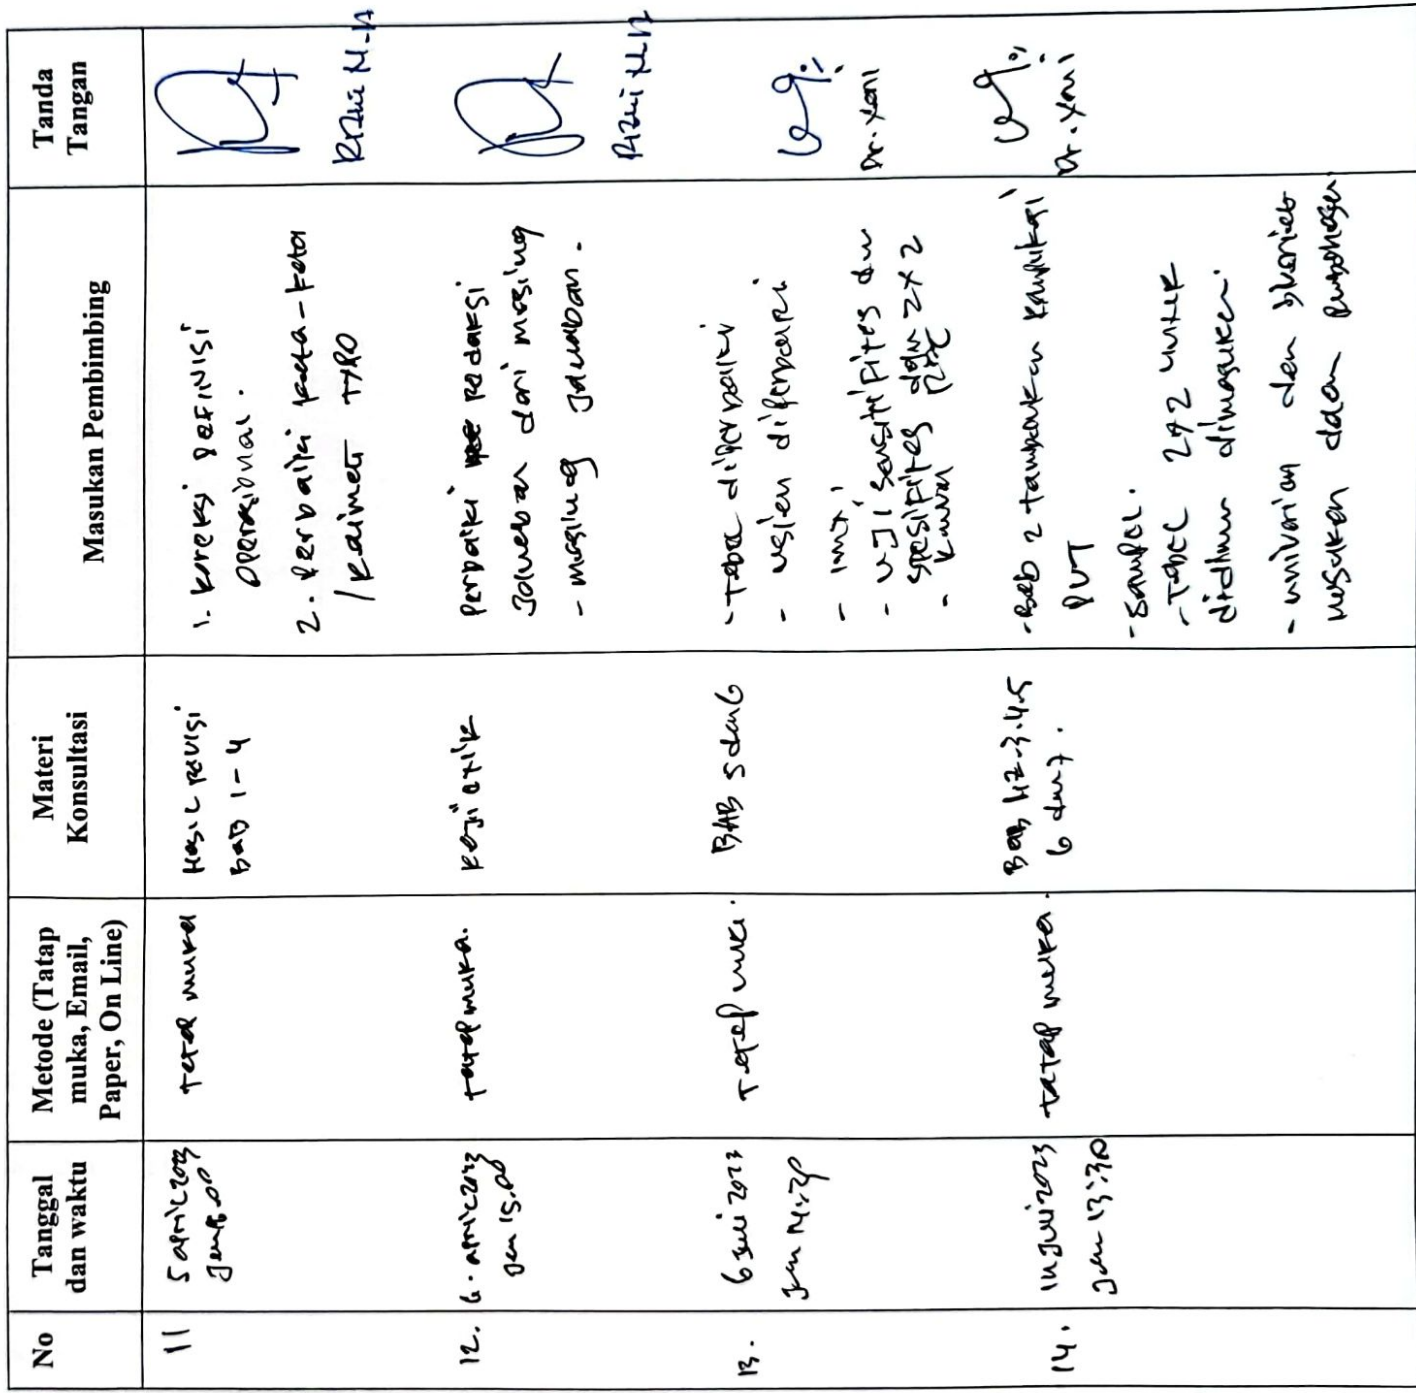 No
Tanggal
dan waktu
Metode (Tatap
muka, Email,
Paper, On Line)
Materi
Konsultasi
Masukan Pembimbing
Tanda
Tangan
11
5 april 2023
tatap muka
Hasil revisi
BAB 1-4
1. Koreksi DEFINISI
Operasibnal.
2. Perbaiki kata-kata
/kalimat TYPO
12.
6. april 2023
Jam 15.00
tatap muka.
Kaji etik
Perbaiki Redaksi
Jawaban dari masing
- masing Jawaban.
13.
6 Juli 2023
Jam 14:20
Tatap muka.
BAB 5 dan 6
- Tabel diperbaiki
- diperbaiki
- IMT
- UJI Sensitifitas dan
spesifitas dan 2x2
Dr. Yani
14.
Juli 2023
Jam 13:30
tatap muka.
6 dan 7.
- Bab 2 tambahkan
- Sampel.
- Tabel 2x2 untuk
dimasukkan.
- univarian dan bivariat
masukan dalam
Dr. Yani